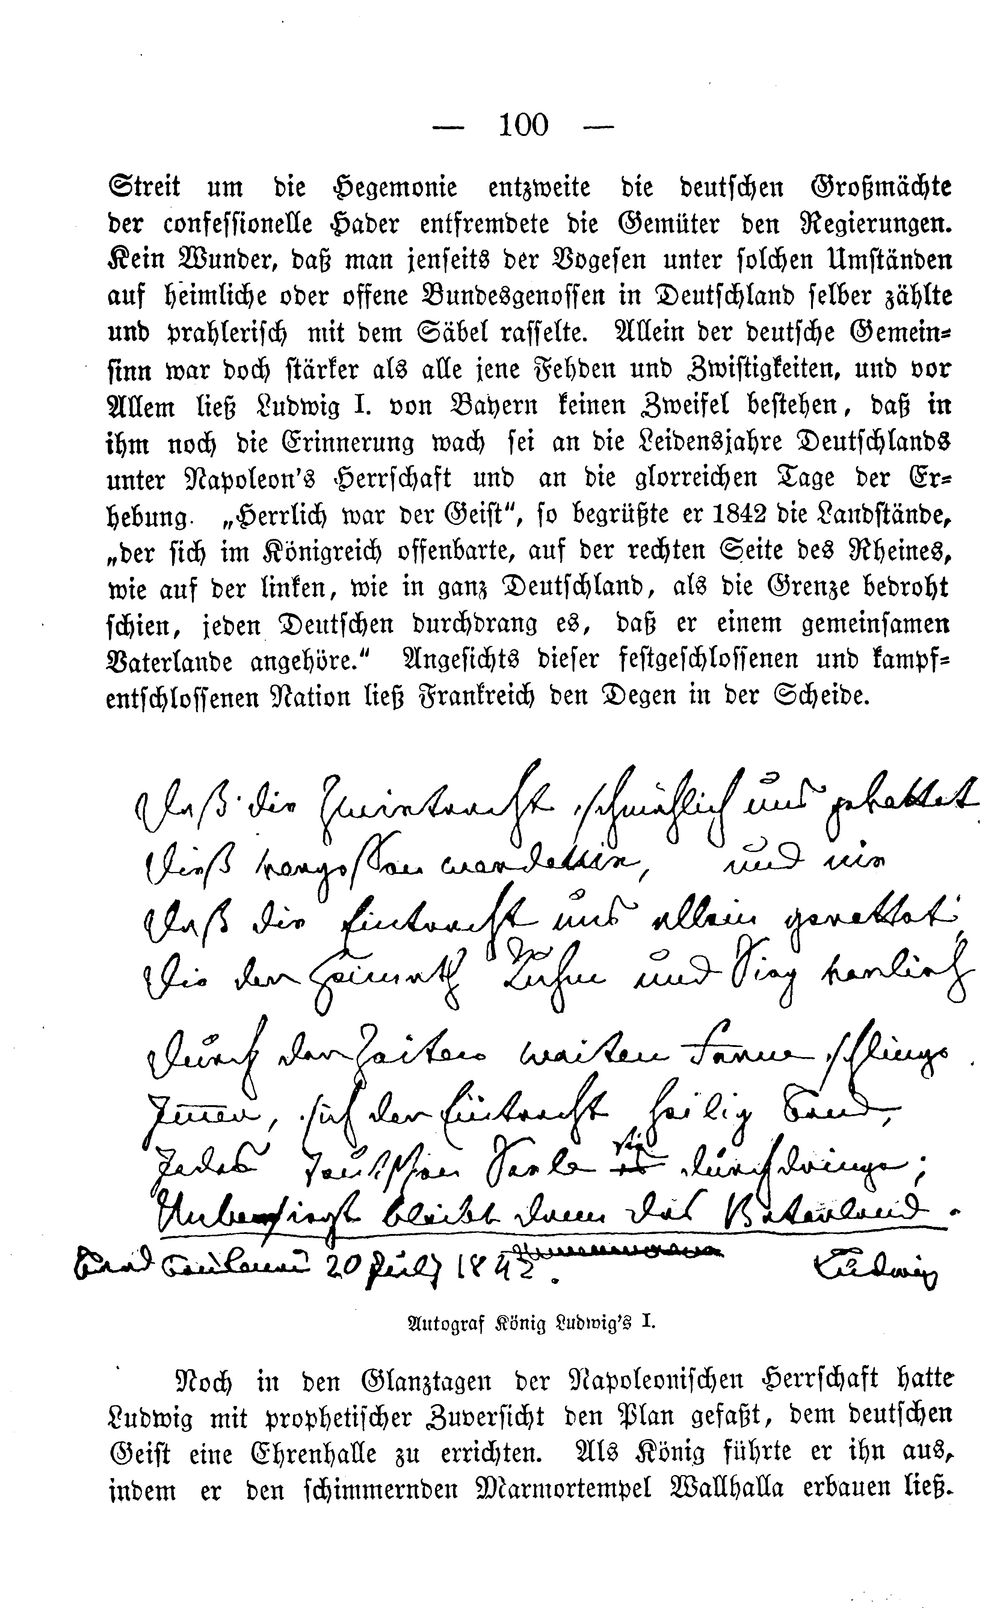 — 100 —
Streit um die Hegemonie entzweite die deutschen Großmächte
der confessionelle Hader entfremdete die Gemüter den Regierungen.
Kein Wunder, daß man jenseits der Vogesen unter solchen Umständen
auf heimliche oder offene Bundesgenossen in Deutschland selber zählte
und prahlerisch mit dem Säbel rasselte. Allein der deutsche Gemein=
sinn war doch stärker als alle jene Fehden und Zwistigkeiten, und vor
Allem ließ Ludwig I. von Bayern keinen Zweifel bestehen, daß in
ihm noch die Erinnerung wach sei an die Leidensjahre Deutschlands
unter Napoleon's Herrschaft und an die glorreichen Tage der Er=
hebung. „Herrlich war der Geist“, so begrüßte er 1842 die Landstände,
„der sich im Königreich offenbarte, auf der rechten Seite des Rheines,
wie auf der linken, wie in ganz Deutschland, als die Grenze bedroht
schien, jeden Deutschen durchdrang es, daß er einem gemeinsamen
Vaterlande angehöre.“ Angesichts dieser festgeschlossenen und kampf=
entschlossenen Nation ließ Frankreich den Degen in der Scheide.
Daß die Zwietracht schmählich uns gekettet
Dieß vergessen werde nie, und nie
Daß die Eintracht uns allein gerettet,
Die der Heimath Ruhm und Sieg verlieh
Durch der Zeiten weiten Ferne schlinge
Immer, sich der Eintracht heilig Band,
Jedes Teutschen Seele sie durchdringe;
Unbesiegt bleibt dann das Vaterland.
Bad Brückenau 20 July 1842. Ludwig
Autograf König Ludwig's I.
Noch in den Glanztagen der Napoleonischen Herrschaft hatte
Ludwig mit prophetischer Zuversicht den Plan gefaßt, dem deutschen
Geist eine Ehrenhalle zu errichten. Als König führte er ihn aus,
indem er den schimmernden Marmortempel Wallhalla erbauen ließ.